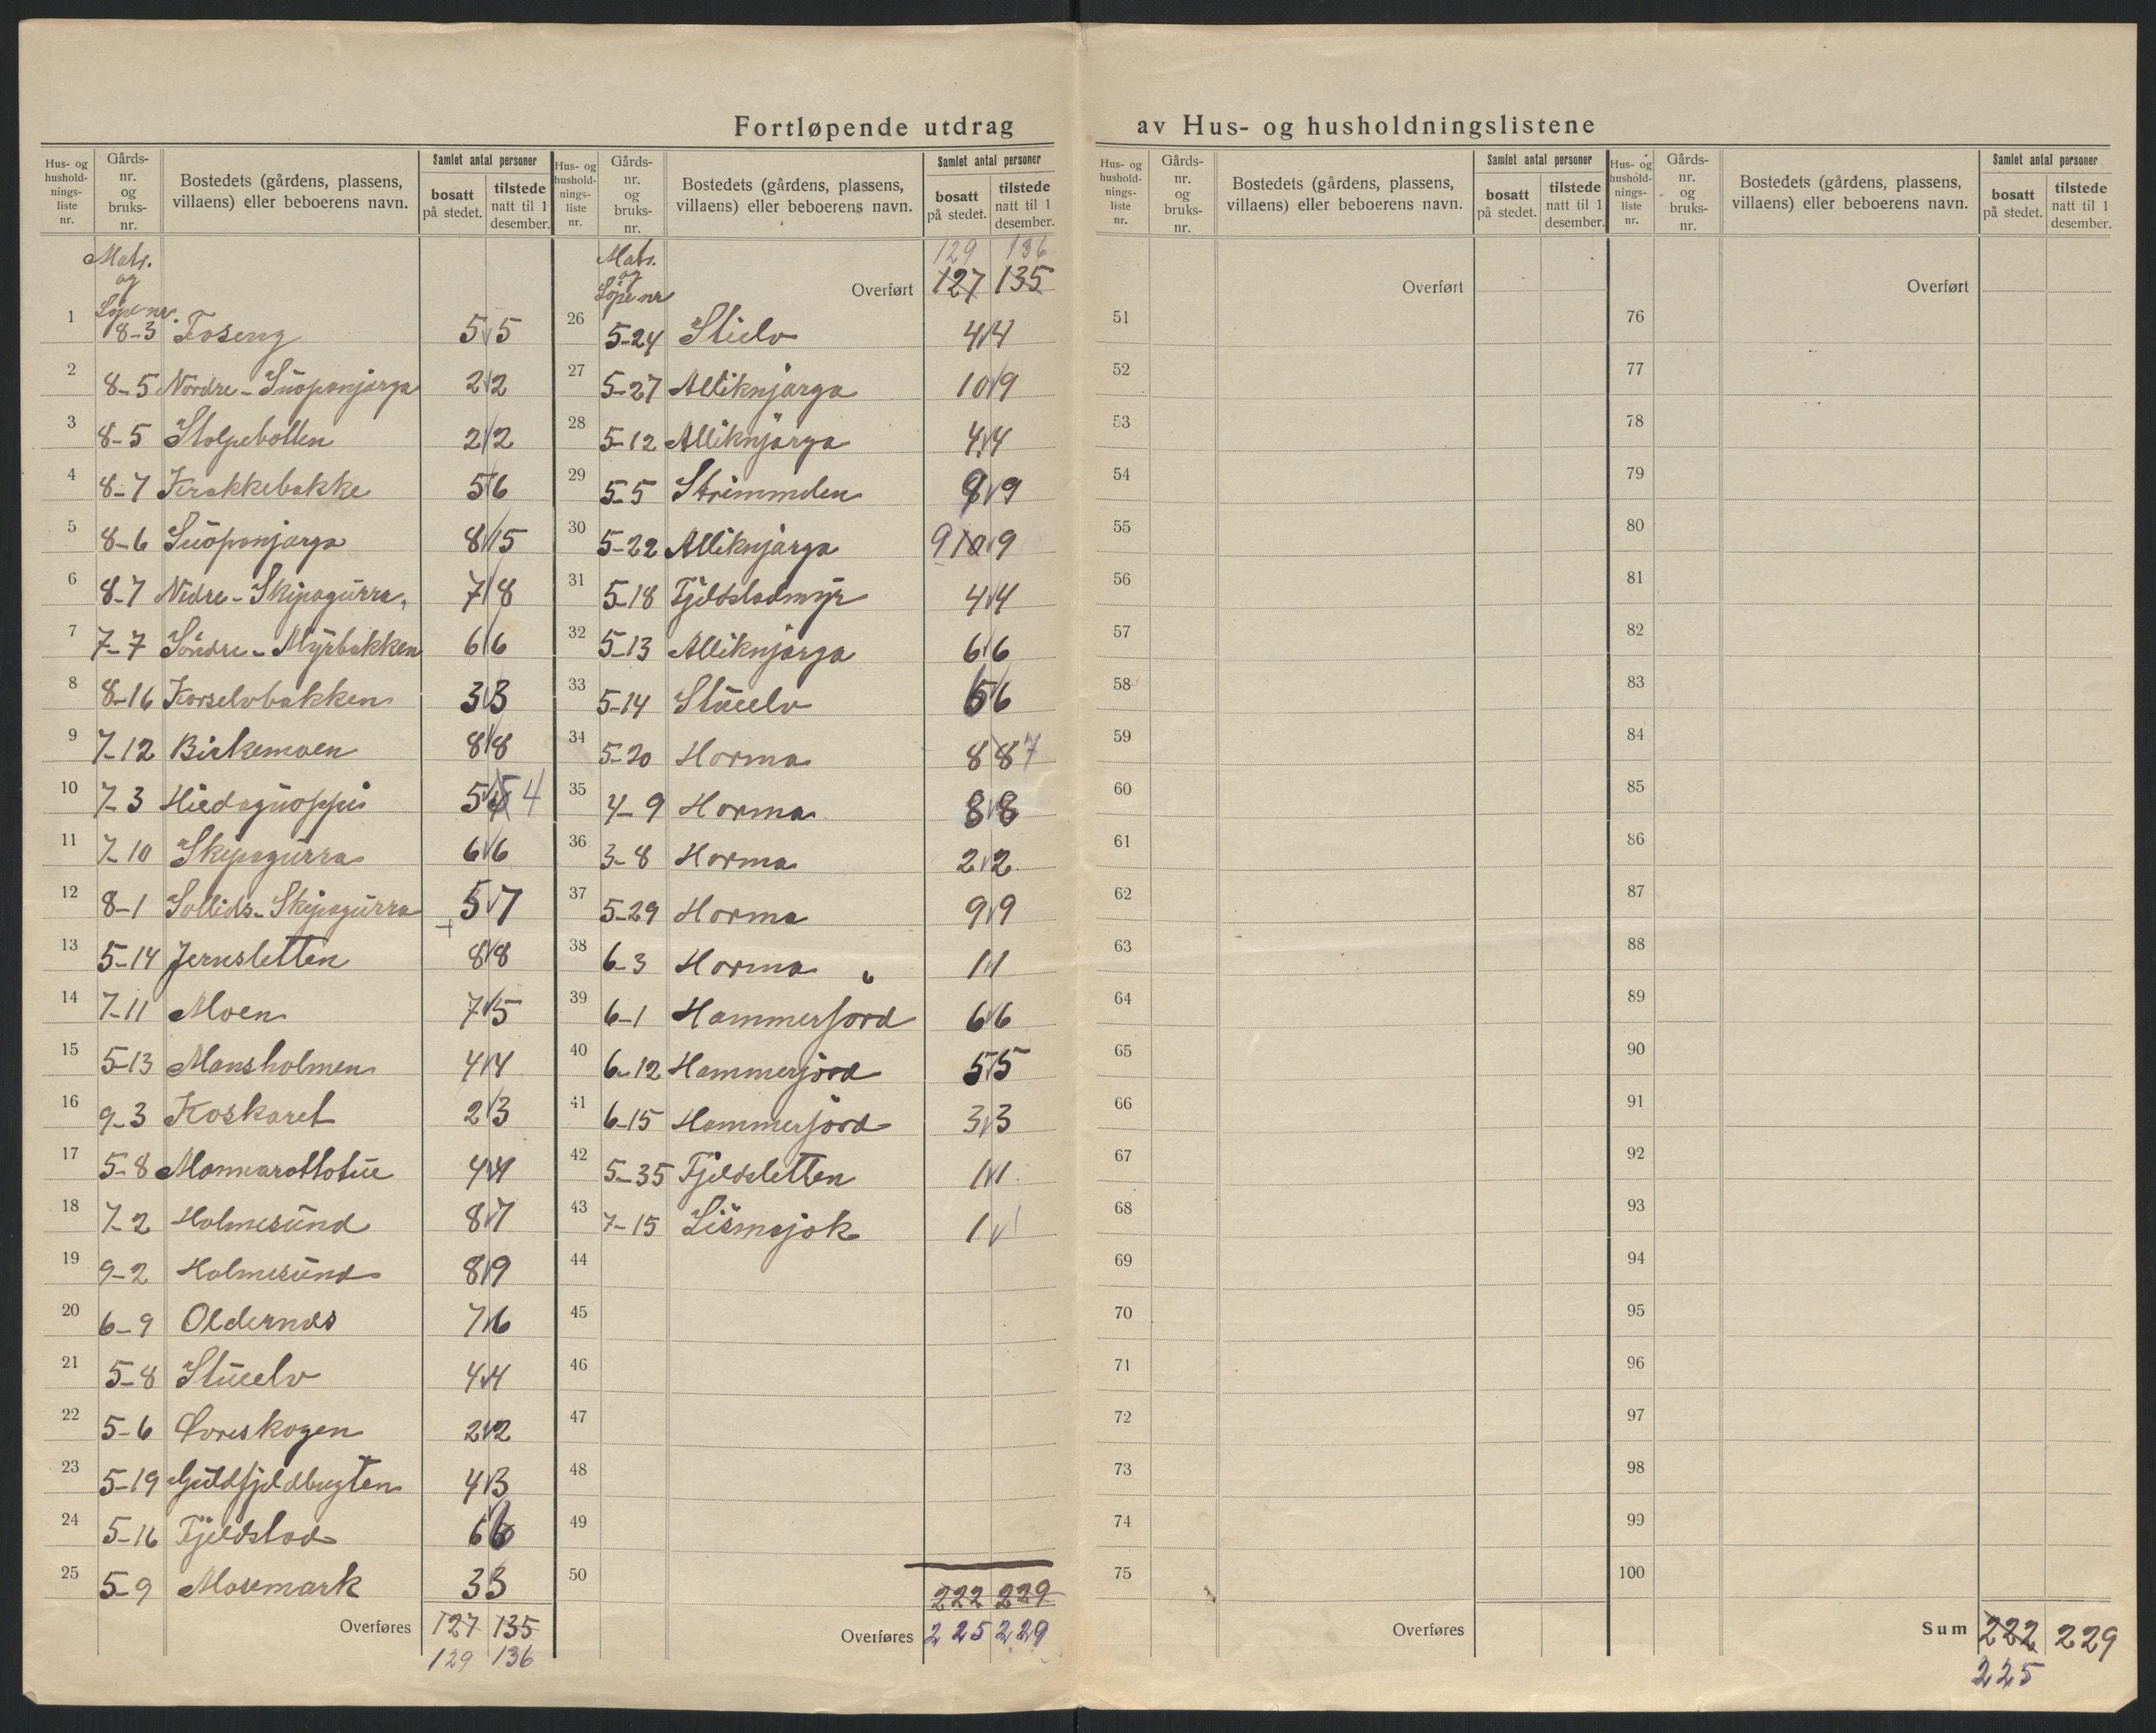 Fortløpende utdrag av Hus- og husholdningslistene
Hus- og hushold-nings-liste nr. Gårds-nr. og bruks-nr. Bostedets (gårdens, plassens, villaens) eller beboerens navn. Samlet antal personer bosatt på stedet. tilstede natt til 1 desember.
Matr. og Løpenr.
1 8-3 Foseng 5 5
2 8-5 Nordre-Suopanjarga 2 2
3 8-5 Stolpebotten 2 2
4 8-7 Krakkebakke 5 6
5 8-6 Suopanjarga 8 15
6 8-7 Nedre-Skipagurra 7 8
7 7-7 Söndre-Myrbakken 6 6
8 8-16 Korselvbakken 3 3
9 7-12 Birkemoen 8 8
10 7-3 Hiedaguoppi 5 5 4
11 7-10 Skipagurra 6 6
12 8-1 Sollids-Skipagurra 5 7
13 5-14 Jernsletten 8 8
14 7-11 Moen 7 5
15 5-13 Mansholmen 4 4
16 9-3 Koskaret 2 3
17 5-8 4 4
18 7-2 Holmesund 8 7
19 9-2 Holmesund 8 9
20 6-9 Oldernes 7 6
21 5-8 Stuelv 4 4
22 5-6 Boreskogen 2 2
23 5-19 Guldfjeldbugten 4 3
24 5-16 Fjeldstad 6 6
25 5-9 Mosemark 3 3
Overføres 127 135
129 136
Hus- og hushold-nings-liste nr. Gårds-nr. og bruks-nr. Bostedets (gårdens, plassens, villaens) eller beboerens navn. Samlet antal personer bosatt på stedet. tilstede natt til 1 desember.
129 136
Matr. og Løpe nr Overført 127 135
26 5-24 Stuelv 4 4
27 5-27 Alliknjarga 10 9
28 5-12 Alliknjarga 4 4
29 5-5 9 9
30 5-22 Alliknjarga 9 10 9
31 5-18 Fjeldstadmyr 4 4
32 5-13 Alliknjarga 6 6
33 5-14 Stuelv 5 6
34 5-20 Horma 8 8 7
35 4-9 Horma 8 8
36 3-8 Horma 2 2
37 5-29 Horma 9 9
38 6-3 Horma 1 1
39 6-1 Hammerjord 6 6
40 6-12 Hammerjord 5 5
41 6-15 Hammerjord 3 3
42 5-35 Fjeldsletten 1 1
43 7-15 Lismajok 1 1
44
45
46
47
48
49
50
222 229
Overføres 225 229
Hus- og hushold-nings-liste nr. Gårds-nr. og bruks-nr. Bostedets (gårdens, plassens, villaens) eller beboerens navn. Samlet antal personer bosatt på stedet. tilstede natt til 1 desember.
Overført
51
52
53
54
55
56
57
58
59
60
61
62
63
64
65
66
67
68
69
70
71
72
73
74
75
Overføres
Hus- og hushold-nings-liste nr. Gårds-nr. og bruks-nr. Bostedets (gårdens, plassens, villaens) eller beboerens navn. Samlet antal personer bosatt på stedet. tilstede natt til 1 desember.
Overført
76
77
78
79
80
81
82
83
84
85
86
87
88
89
90
91
92
93
94
95
96
97
98
99
100
Sum 222 229
225